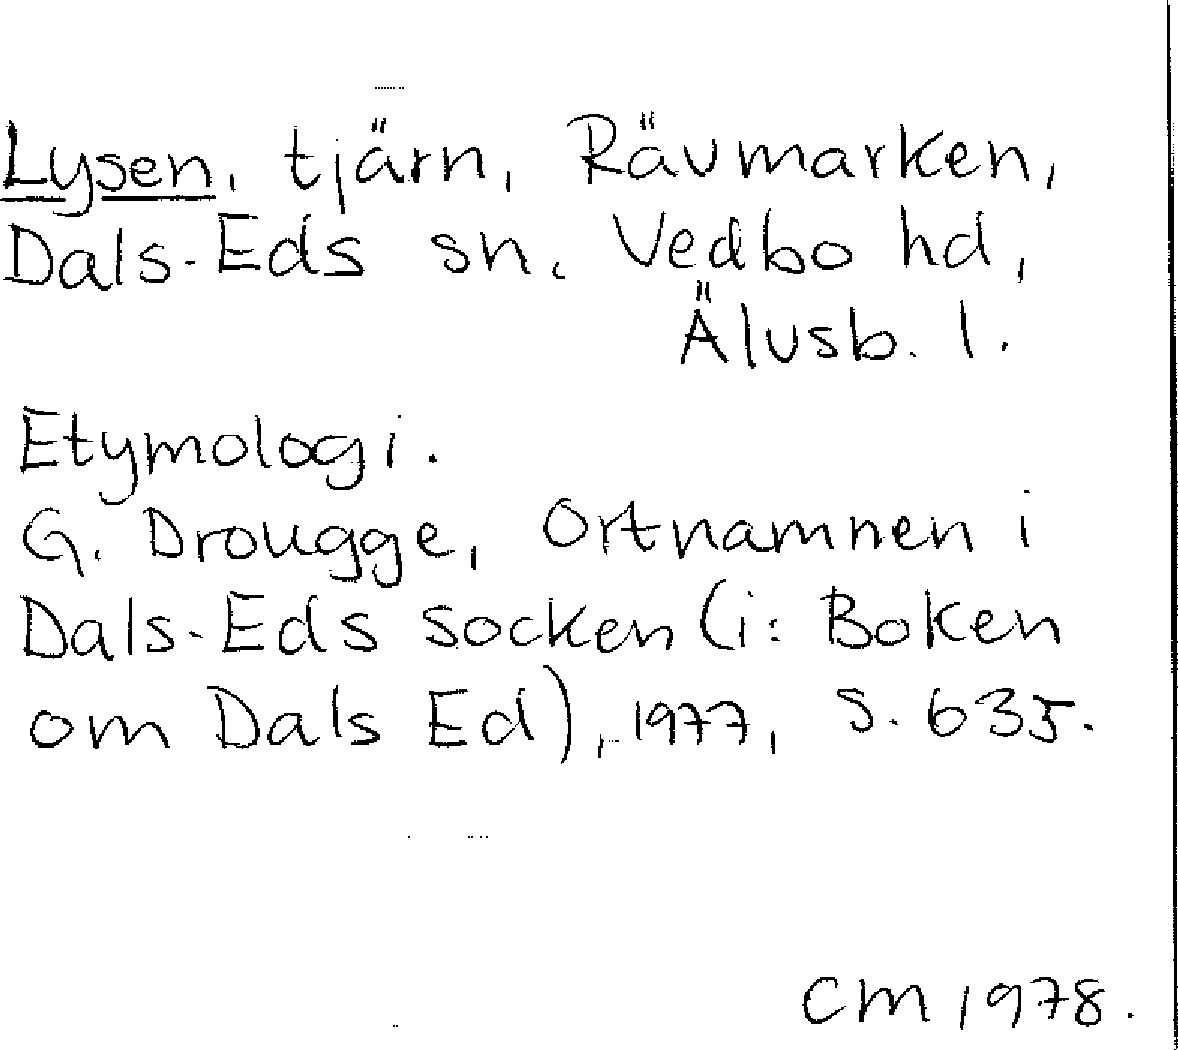 Lysen, tjärn, Rävmarken,
Dals-Eds sn. Vedbo hd,
Älvsb. l.
Etymologi.
G. Drougge, Ortnamnen i
Dals-Eds socken (i: Boken
om Dals Ed), 1977, s. 635.
CM 1978.